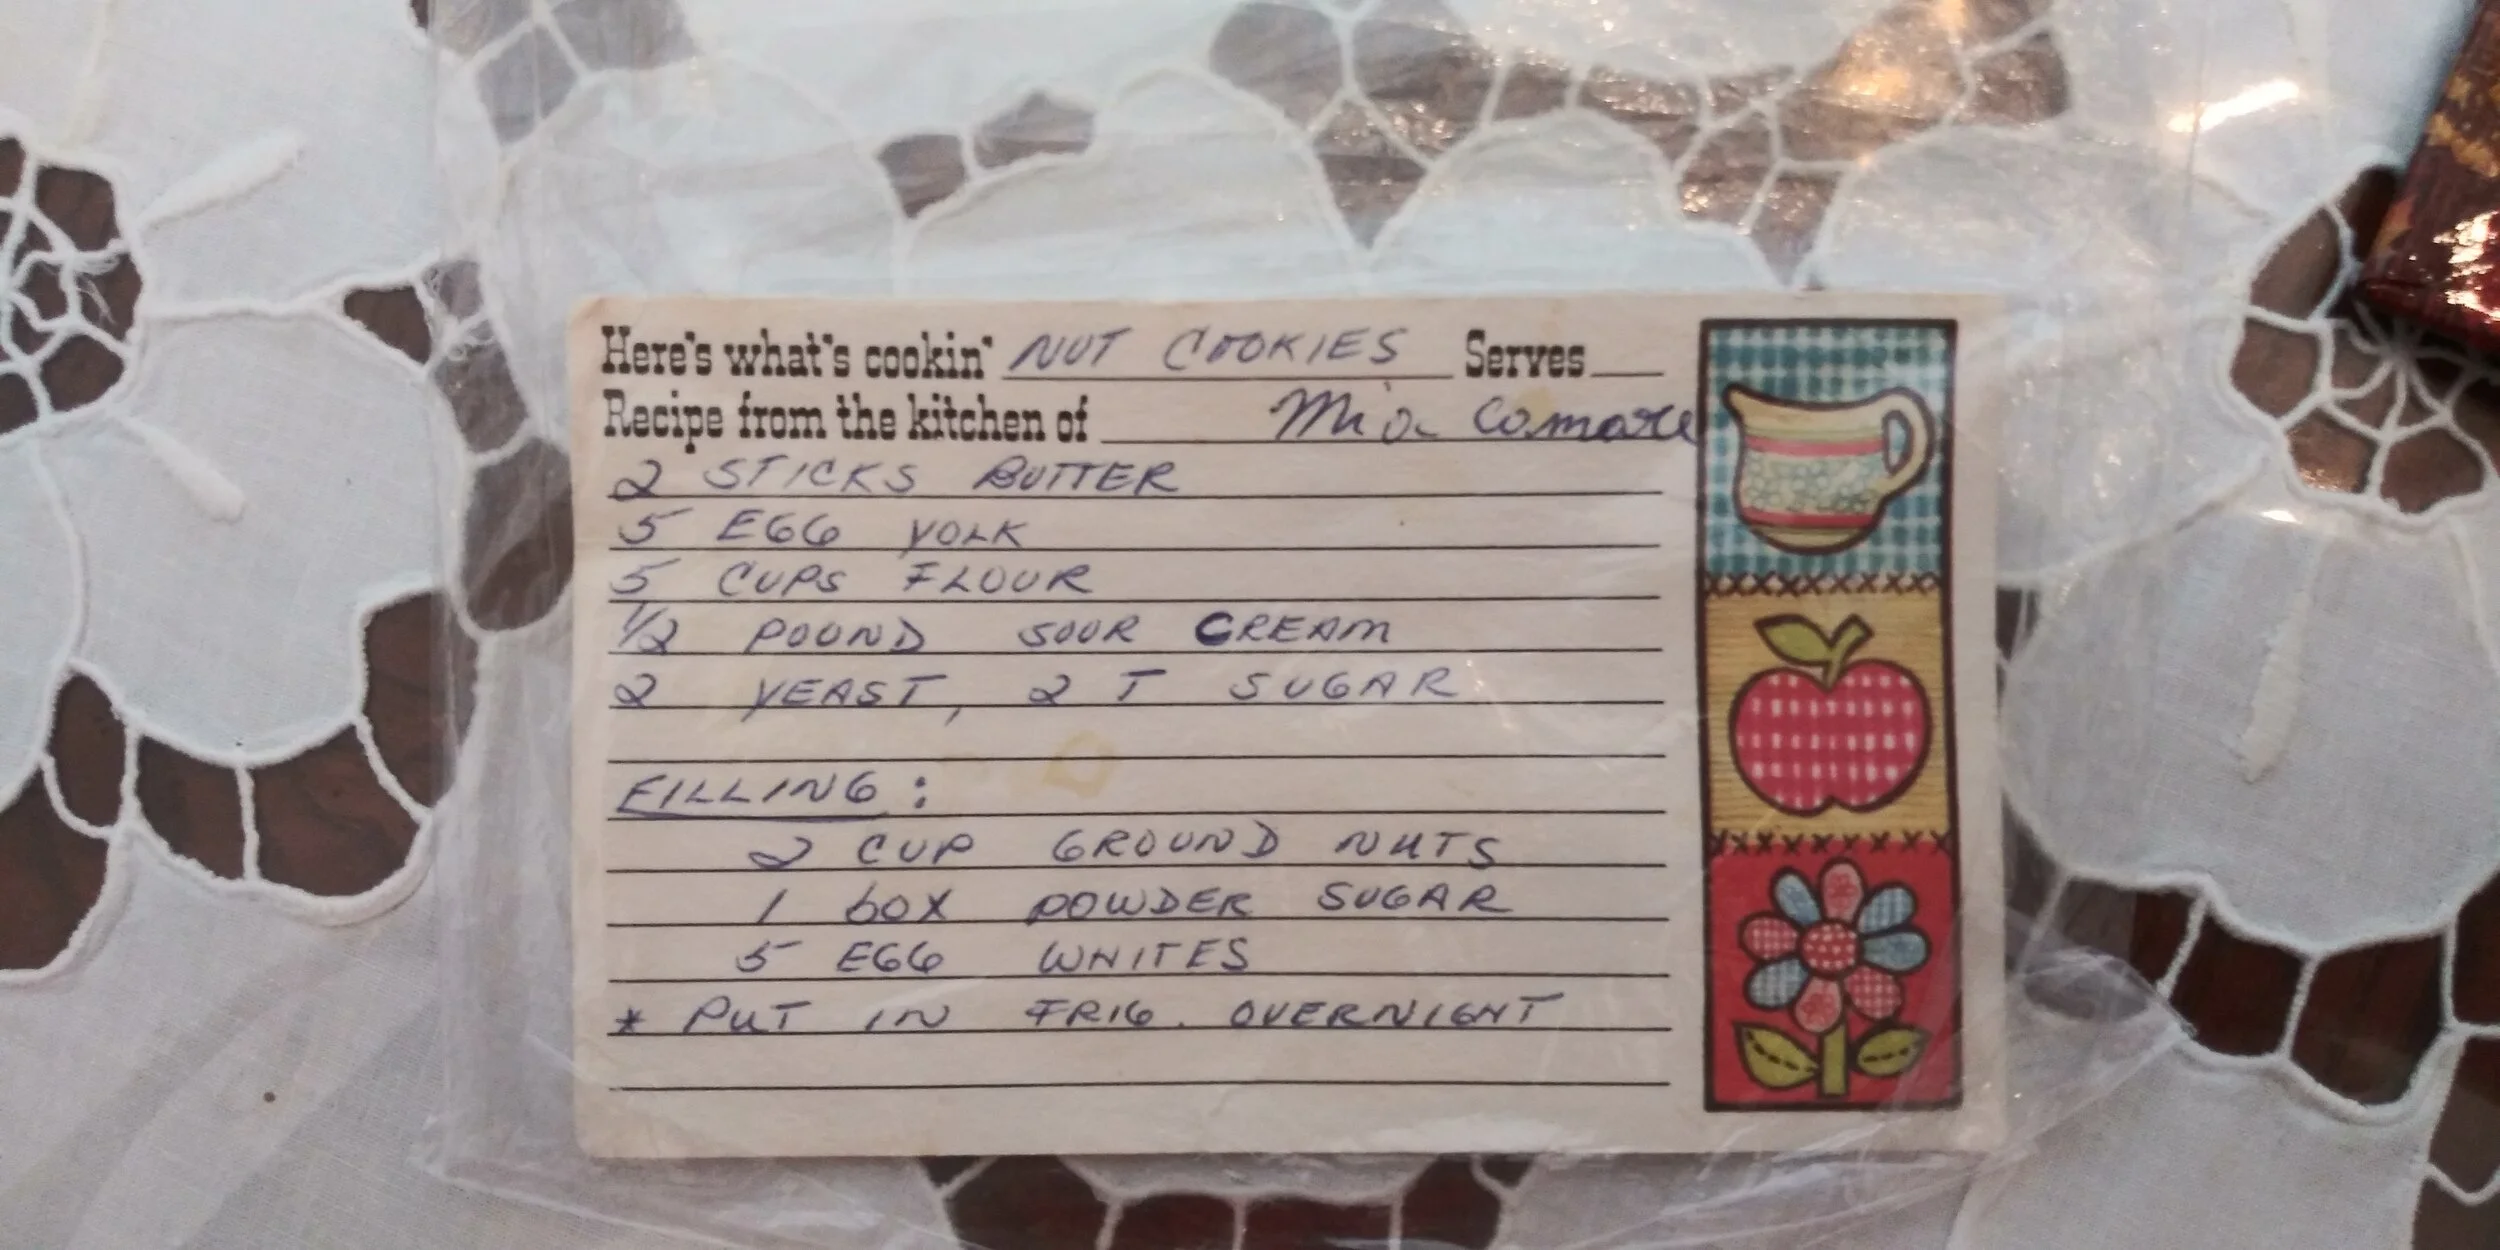 Here's what's cookin' NUT COOKIES Serves
Recipe from the kitchen of Mia Comare
2 STICKS BUTTER
5 EGG YOLK
5 CUPS FLOUR
1/2 POUND SOUR CREAM
2 YEAST, 2 T SUGAR
FILLING:
2 CUP GROUND NUTS
1 BOX POWDER SUGAR
5 EGG WHITES
* PUT IN FRIG. OVERNIGHT